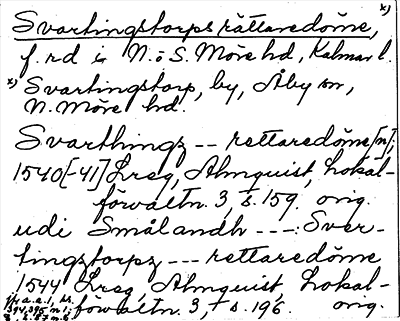 Svartingstorps rättaredöme, x)
f.rd i N. o S. Möre hd, Kalmar l.
x) Svartingstorp, by, Åby sn,
N. Möre hd.
Svarthingz -- rettaredöme[n];
1540[-41] Lreg, Almquist, Lokal-
förvaltn. 3, s. 159. orig.
udi Smålandh --- Sver-
tingstorpz --- rettaredöme
1544 Lreg, Almquist, Lokal-
förvaltn. 3, s. 196. orig.